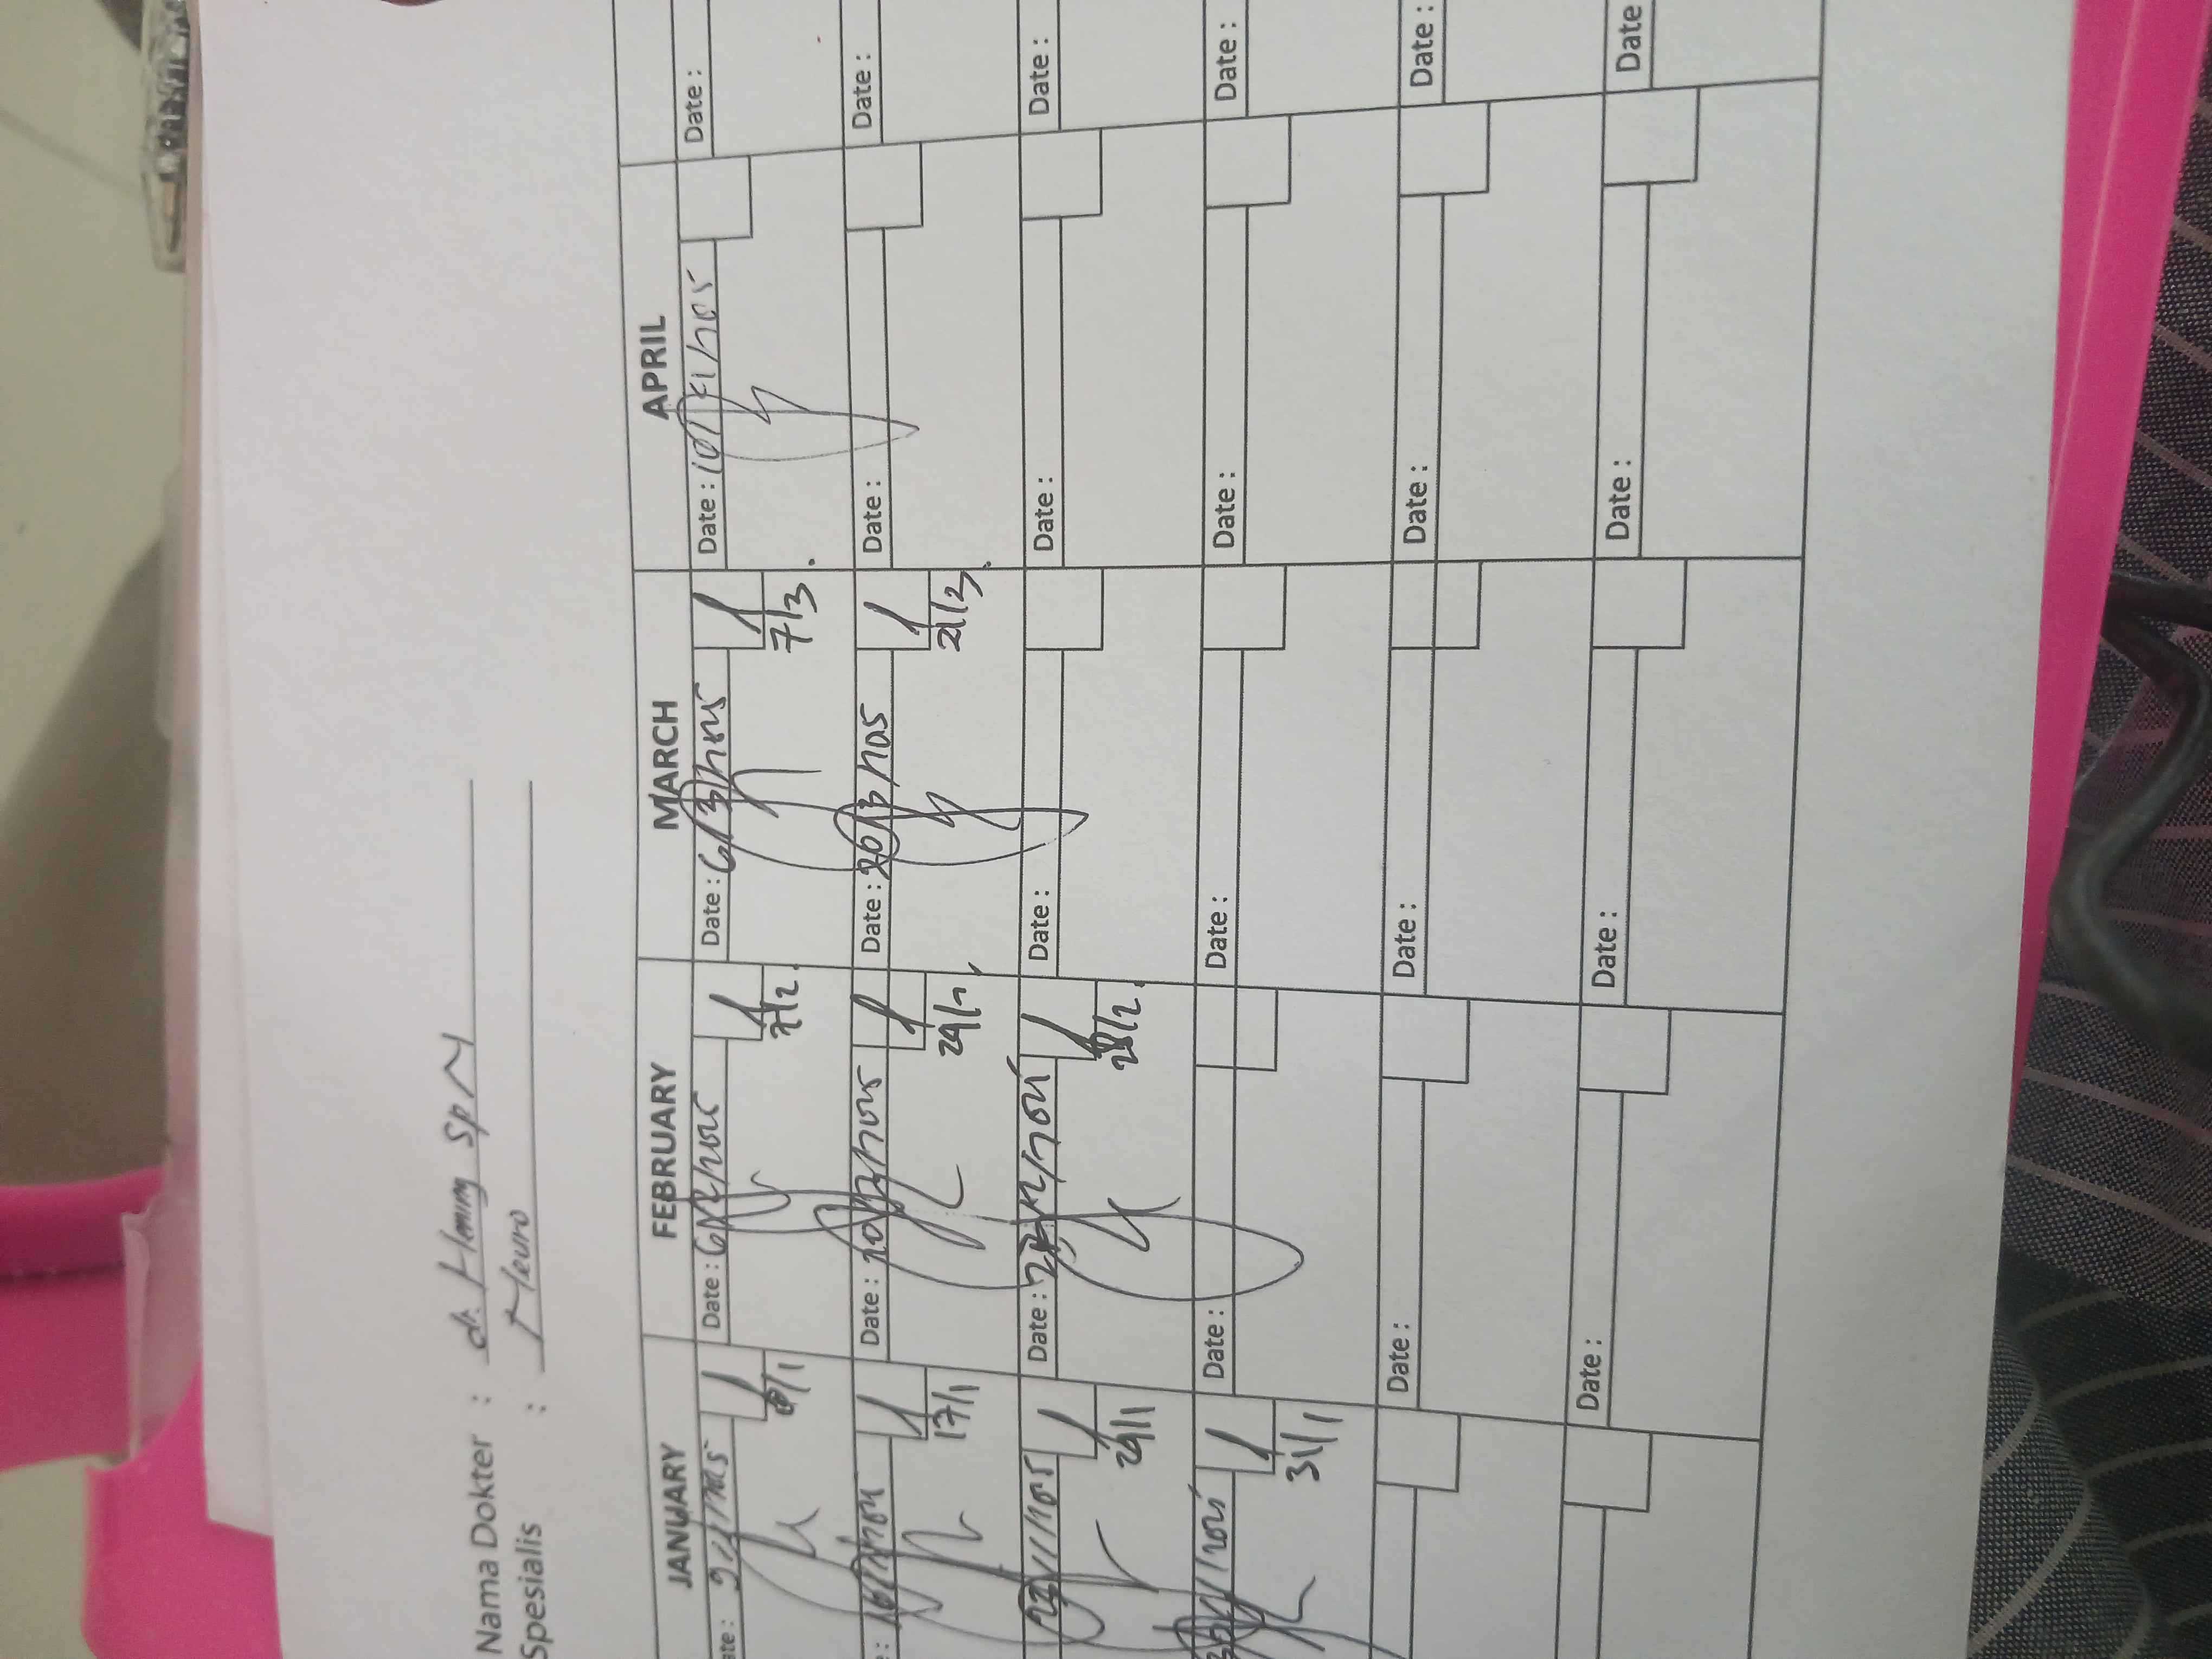 Nama Dokter : dr. Hening Sp N
Spesialis : Neuro
JANUARY FEBRUARY MARCH APRIL
ate: 9/1/2025 Date: 6/2/2025 7/2. Date: 6/3/2025 7/3. Date: 10/4/2025 Date:
: 16/1/2025 17/1 Date: 20/2/2025 Date: 20/3/2025 21/3. Date: Date:
23/1/2025 24/1 Date: 27/2/2025 28/2. Date: Date: Date:
30/1/2025 31/1 Date: Date: Date: Date:
Date: Date: Date: Date:
Date: Date: Date: Date